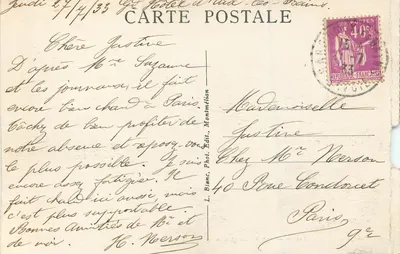 Jeudi 27/7/33 Gd Hotel d'Aix-les-Bains
CARTE POSTALE
Chère Justine
D'après Mr Suzanne
et les journaux il fait
encore bien chaud à Paris
Tâchez de bien profiter de
notre absence et reposez vous
le plus possible. Je suis
encore assez fatiguée. Il
fait chaud ici aussi mais
c'est plus supportable.
Bonnes Amitiés de Mr et
de moi.
H. Nerson
L. Blanc, Phot. Edit., Montmélian
40c
Mademoiselle
Justine
Chez Mr Nerson
40 Rue Condorcet
Paris
9e